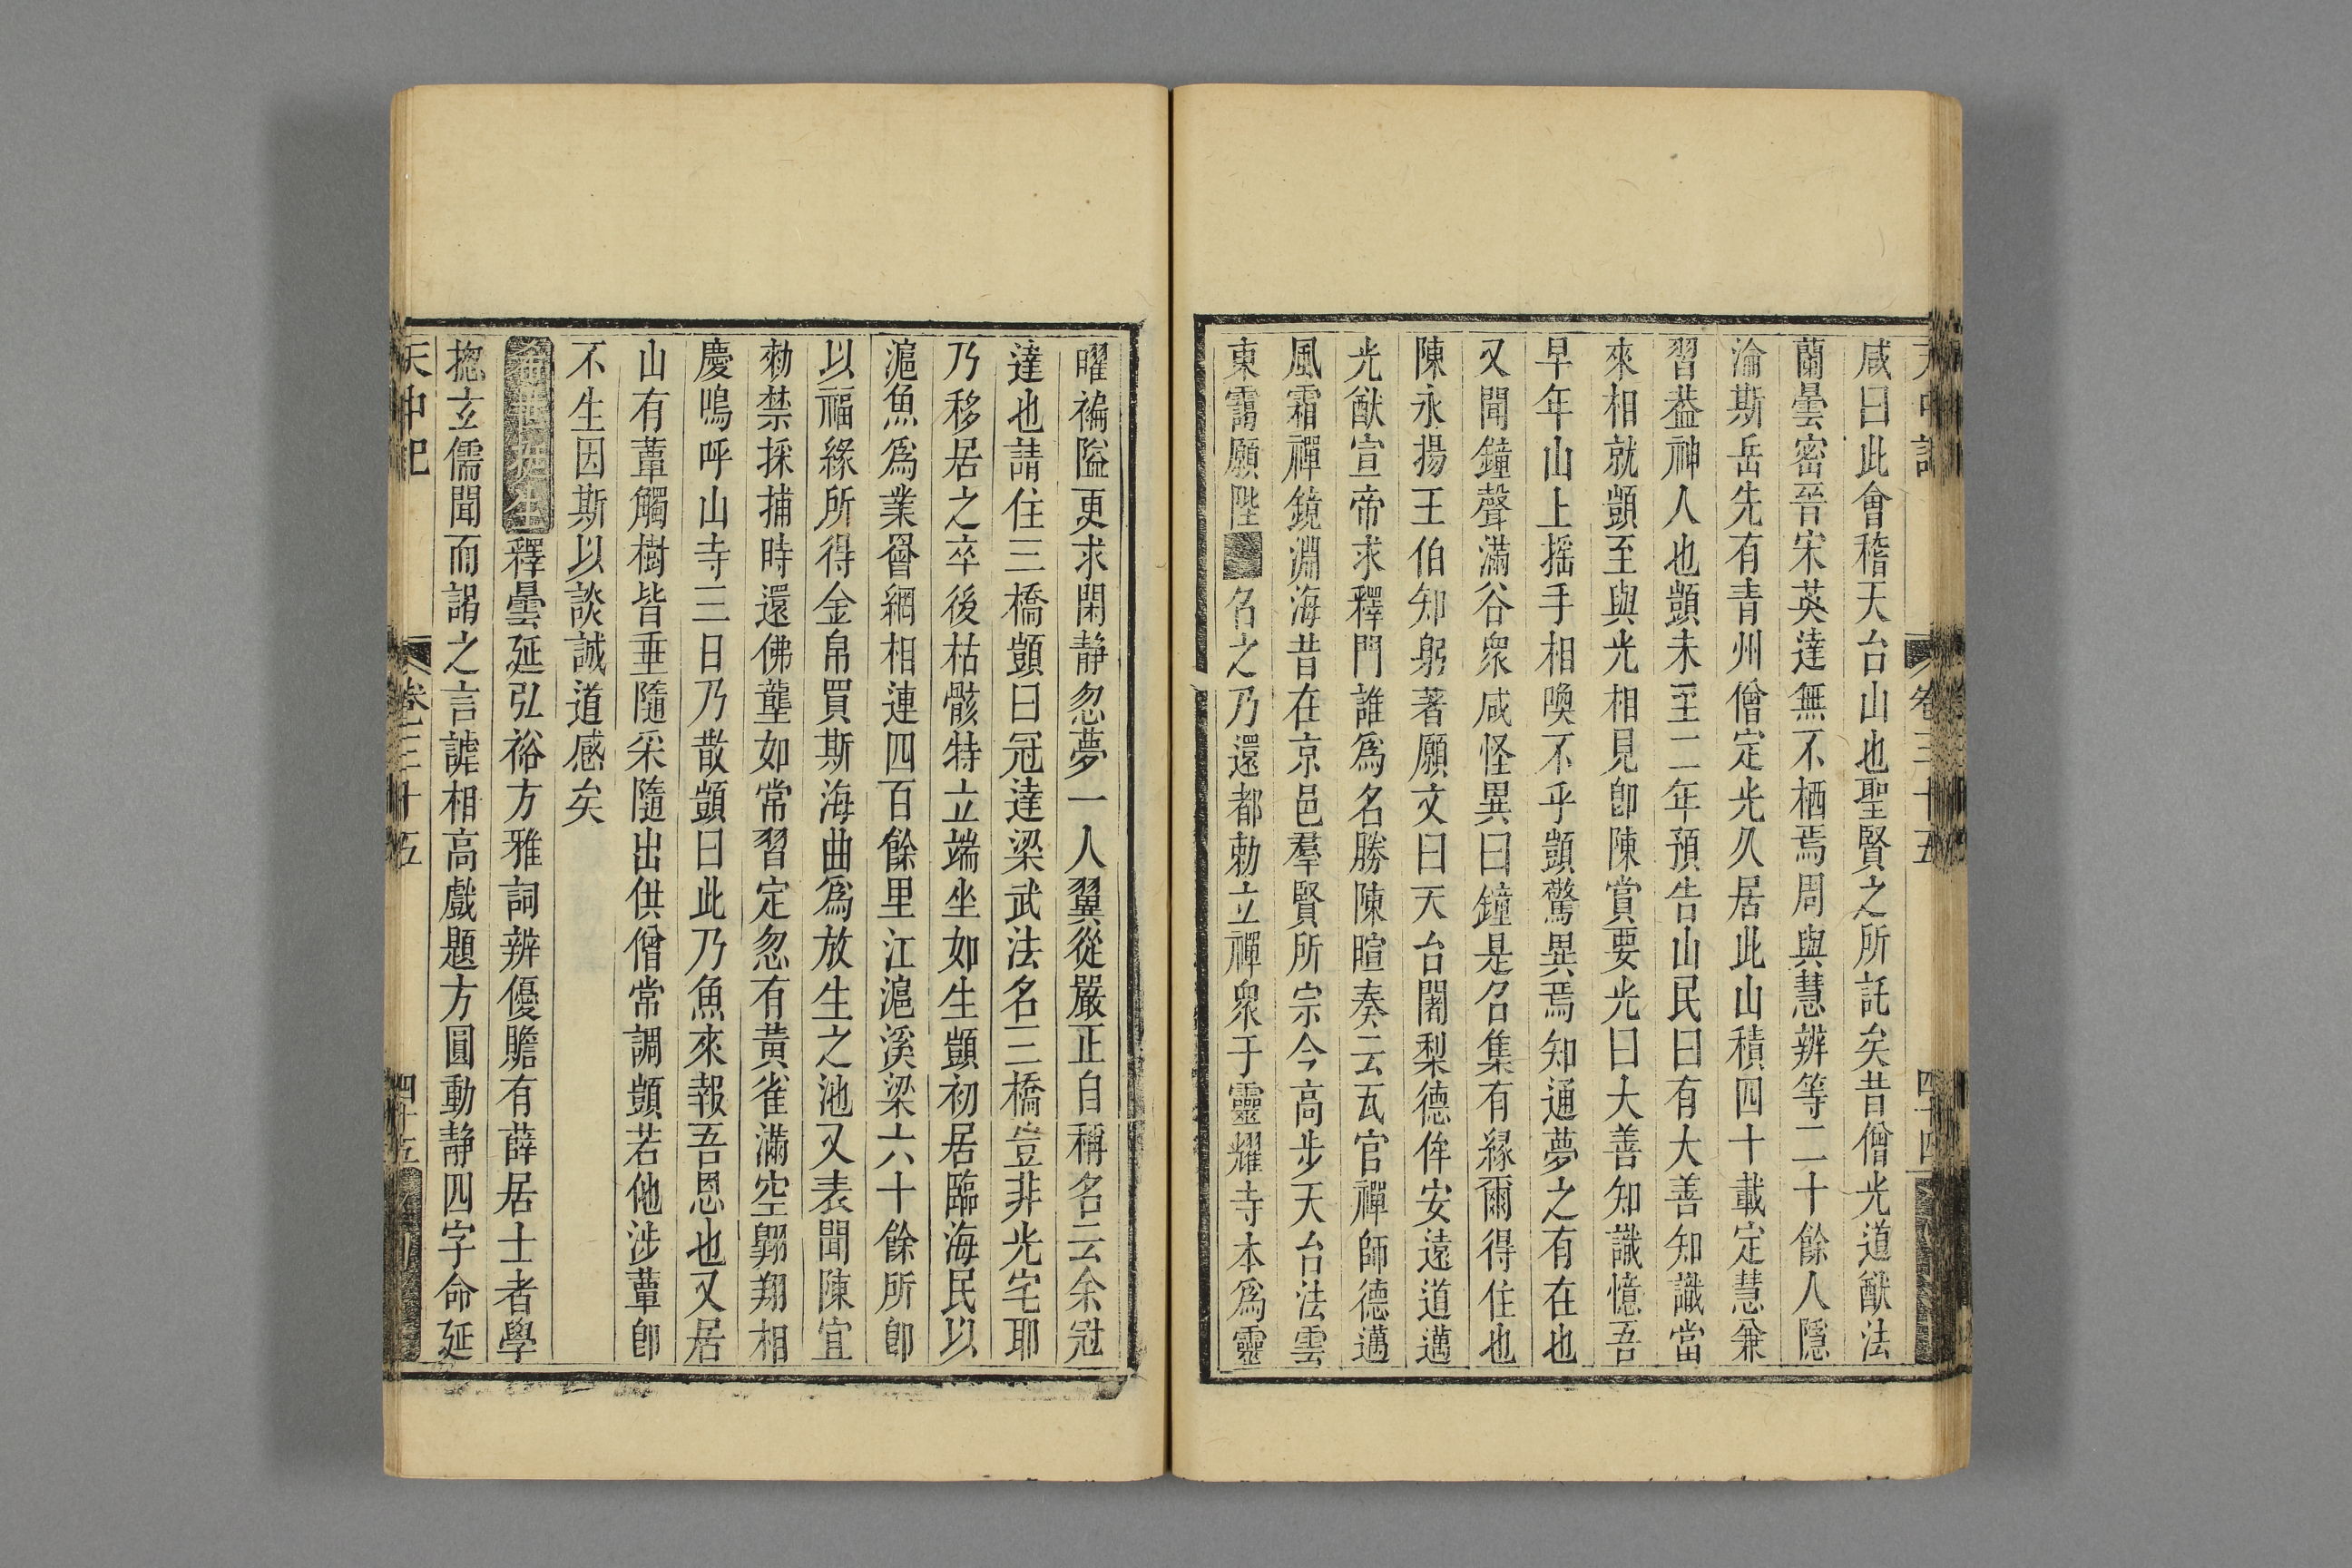 天中記 卷三十五 四十四
咸曰此會稽天台山也聖賢之所託矣昔僧光道猷法
蘭曇密晉宋英達無不栖焉周與慧辨等二十餘人隱
淪斯岳先有青州僧定光久居此山積四十載定慧兼
習葢神人也顗未至二年預告山民曰有大善知識當
來相就顗至與光相見卽陳賞要光曰大善知識憶吾
早年山上搖手相喚不乎顗驚異焉知通夢之有在也
又聞鐘聲滿谷衆咸怪異曰鐘是召集有緣爾得住也
陳永揚王伯知躬著願文曰天台闍梨德侔安遠道邁
光猷宣帝求釋門誰爲名勝陳暄奏云瓦官禪師德邁
風霜禪鏡淵海昔在京邑羣賢所宗今高步天台法雲
東靄願陛名之乃還都勅立禪衆于靈耀寺本爲靈
曜褊隘更求閑靜忽夢一人翼從嚴正自稱名云余冠
達也請住三橋顗曰冠達梁武法名三橋豈非光宅耶
乃移居之卒後枯骸特立端坐如生顗初居臨海民以
滬魚爲業罾網相連四百餘里江滬溪梁六十餘所卽
以福緣所得金帛買斯海曲爲放生之池又表聞陳宣
勑禁採捕時還佛壟如常習定忽有黃雀滿空翺翔相
慶鳴呼山寺三日乃散顗曰此乃魚來報吾恩也又居
山有蕈觸樹皆垂隨采隨出供僧常調顗若他涉蕈卽
不生因斯以談誠道感矣
釋曇延弘裕方雅詞辨優贍有薛居士者學
揔玄儒聞而謁之言謔相高戲題方圓動靜四字命延
天中記 卷三十五 四十五